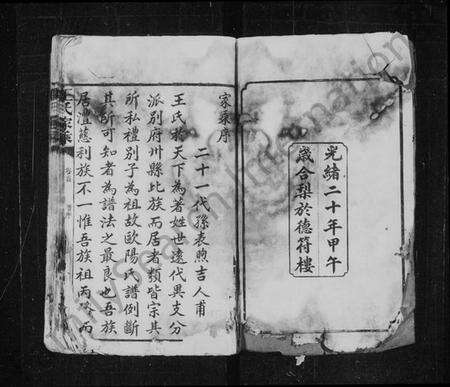 光緒二十年甲午
歲合梨於德符樓
家乘序
二十一代孫表煦吉人甫
王氏於天下為著姓世遠代異支分
派別府卅縣比族而居者類皆宗其
所私禮別子為祖故歐陽氏譜例斷
其所可知者為譜法之最良也吾族
居澧慈利族不一惟吾族祖丙
而